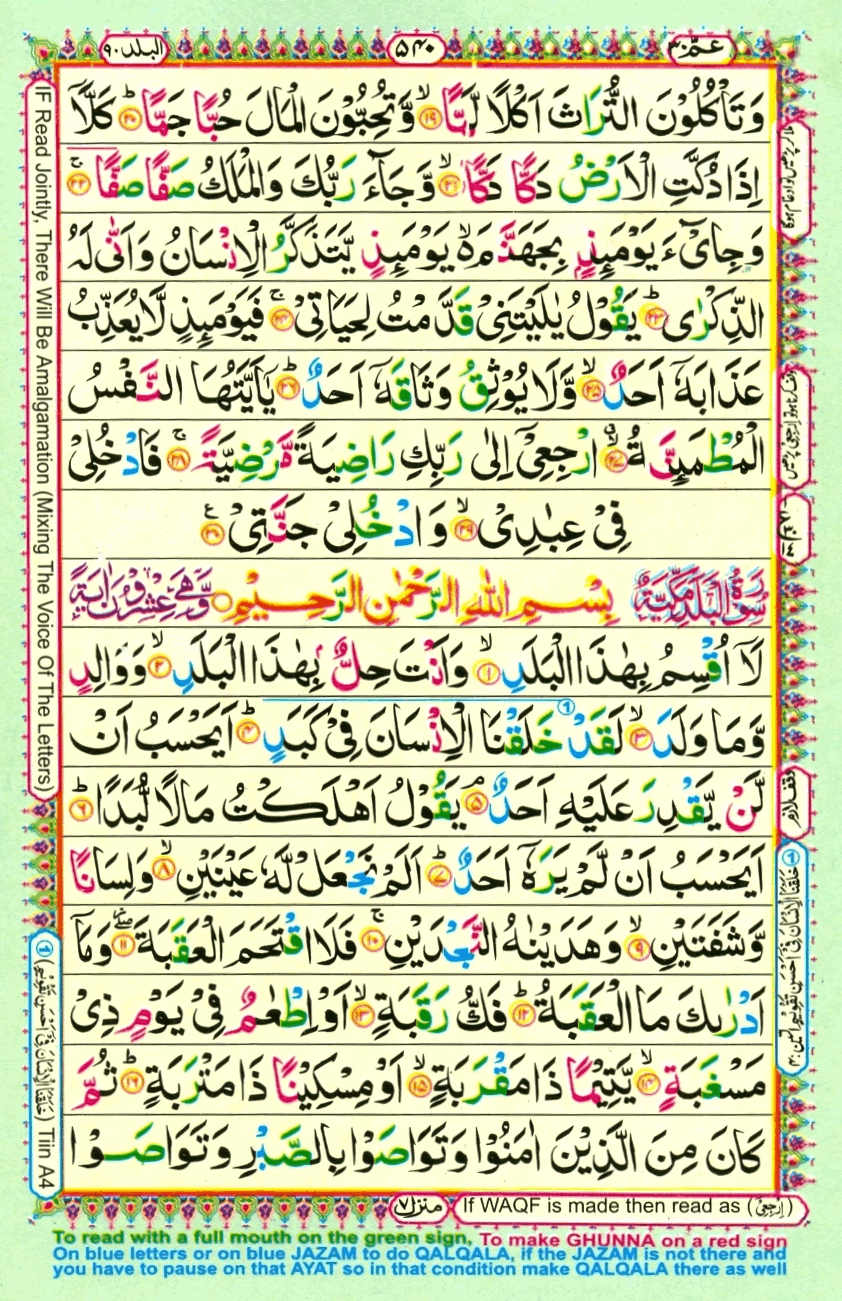 عـمّ ٣٠
٥٤٠
البلد ٩٠
وَتَاْكُلُوْنَ التُّرَاثَ اَكْلًا لَّمًّا ۙ﴿۱۹﴾ وَّتُحِبُّوْنَ الْمَالَ حُبًّا جَمًّا ؕ﴿۲۰﴾ كَلَّاۤ
اِذَا دُكَّتِ الْاَرْضُ دَكًّا دَكًّا ۙ﴿۲۱﴾ وَّجَآءَ رَبُّكَ وَالْمَلَكُ صَفًّا صَفًّا ۚ﴿۲۲﴾
وَجِایْٓءَ يَوْمَئِذٍۭ بِجَهَنَّمَ ۙ۬ يَوْمَئِذٍ يَّتَذَكَّرُ الْاِنْسَانُ وَاَنّٰى لَهُ
الذِّكْرٰى ؕ﴿۲۳﴾ يَقُوْلُ يٰلَيْتَنِیْ قَدَّمْتُ لِحَيَاتِیْ ۚ﴿۲۴﴾ فَيَوْمَئِذٍ لَّا يُعَذِّبُ
عَذَابَهٗۤ اَحَدٌ ۙ﴿۲۵﴾ وَّلَا يُوْثِقُ وَثَاقَهٗۤ اَحَدٌ ؕ﴿۲۶﴾ يٰۤاَيَّتُهَا النَّفْسُ
الْمُطْمَئِنَّةُ ۖ﴿۲۷﴾ ارْجِعِیْۤ اِلٰى رَبِّكِ رَاضِيَةً مَّرْضِيَّةً ۚ﴿۲۸﴾ فَادْخُلِیْ
فِیْ عِبٰدِیْ ۙ﴿۲۹﴾ وَادْخُلِیْ جَنَّتِیْ ﴿۳۰﴾
سُوْرَةُ الْبَلَدِ مَكِّيَّةٌ بِسْمِ اللّٰهِ الرَّحْمٰنِ الرَّحِيْمِ وَّهِیَ عِشْرُوْنَ اٰيَةً
لَاۤ اُقْسِمُ بِهٰذَا الْبَلَدِ ۙ﴿۱﴾ وَاَنْتَ حِلٌّۢ بِهٰذَا الْبَلَدِ ۙ﴿۲﴾ وَوَالِدٍ
وَّمَا وَلَدَ ۙ﴿۳﴾ لَقَدْ خَلَقْنَا الْاِنْسَانَ فِیْ كَبَدٍ ؕ﴿۴﴾ اَيَحْسَبُ اَنْ
لَّنْ يَّقْدِرَ عَلَيْهِ اَحَدٌ ۘ﴿۵﴾ يَقُوْلُ اَهْلَكْتُ مَالًا لُّبَدًا ؕ﴿۶﴾
اَيَحْسَبُ اَنْ لَّمْ يَرَهٗۤ اَحَدٌ ؕ﴿۷﴾ اَلَمْ نَجْعَلْ لَّهٗ عَيْنَيْنِ ۙ﴿۸﴾ وَلِسَانًا
وَّشَفَتَيْنِ ۙ﴿۹﴾ وَهَدَيْنٰهُ النَّجْدَيْنِ ۚ﴿۱۰﴾ فَلَا اقْتَحَمَ الْعَقَبَةَ ۖ﴿۱۱﴾ وَمَاۤ
اَدْرٰىكَ مَا الْعَقَبَةُ ؕ﴿۱۲﴾ فَكُّ رَقَبَةٍ ۙ﴿۱۳﴾ اَوْ اِطْعٰمٌ فِیْ يَوْمٍ ذِیْ
مَسْغَبَةٍ ۙ﴿۱۴﴾ يَّتِيْمًا ذَا مَقْرَبَةٍ ۙ﴿۱۵﴾ اَوْ مِسْكِيْنًا ذَا مَتْرَبَةٍ ؕ﴿۱۶﴾ ثُمَّ
كَانَ مِنَ الَّذِيْنَ اٰمَنُوْا وَتَوَاصَوْا بِالصَّبْرِ وَتَوَاصَوْا
IF Read Jointly, There Will Be Amalgamation (Mixing The Voice Of The Letters)
① (خَلَقْنَا الْاِنْسَانَ فِیْۤ اَحْسَنِ تَقْوِيْمٍ) Tiin A4
وقف لازم
① خَلَقْنَا الْاِنْسَانَ فِیْۤ اَحْسَنِ تَقْوِيْمٍ التين: ٤
منزل ٧
If WAQF is made then read as (اِرْجِعِیْ)
To read with a full mouth on the green sign, To make GHUNNA on a red sign
On blue letters or on blue JAZAM to do QALQALA, if the JAZAM is not there and
you have to pause on that AYAT so in that condition make QALQALA there as well